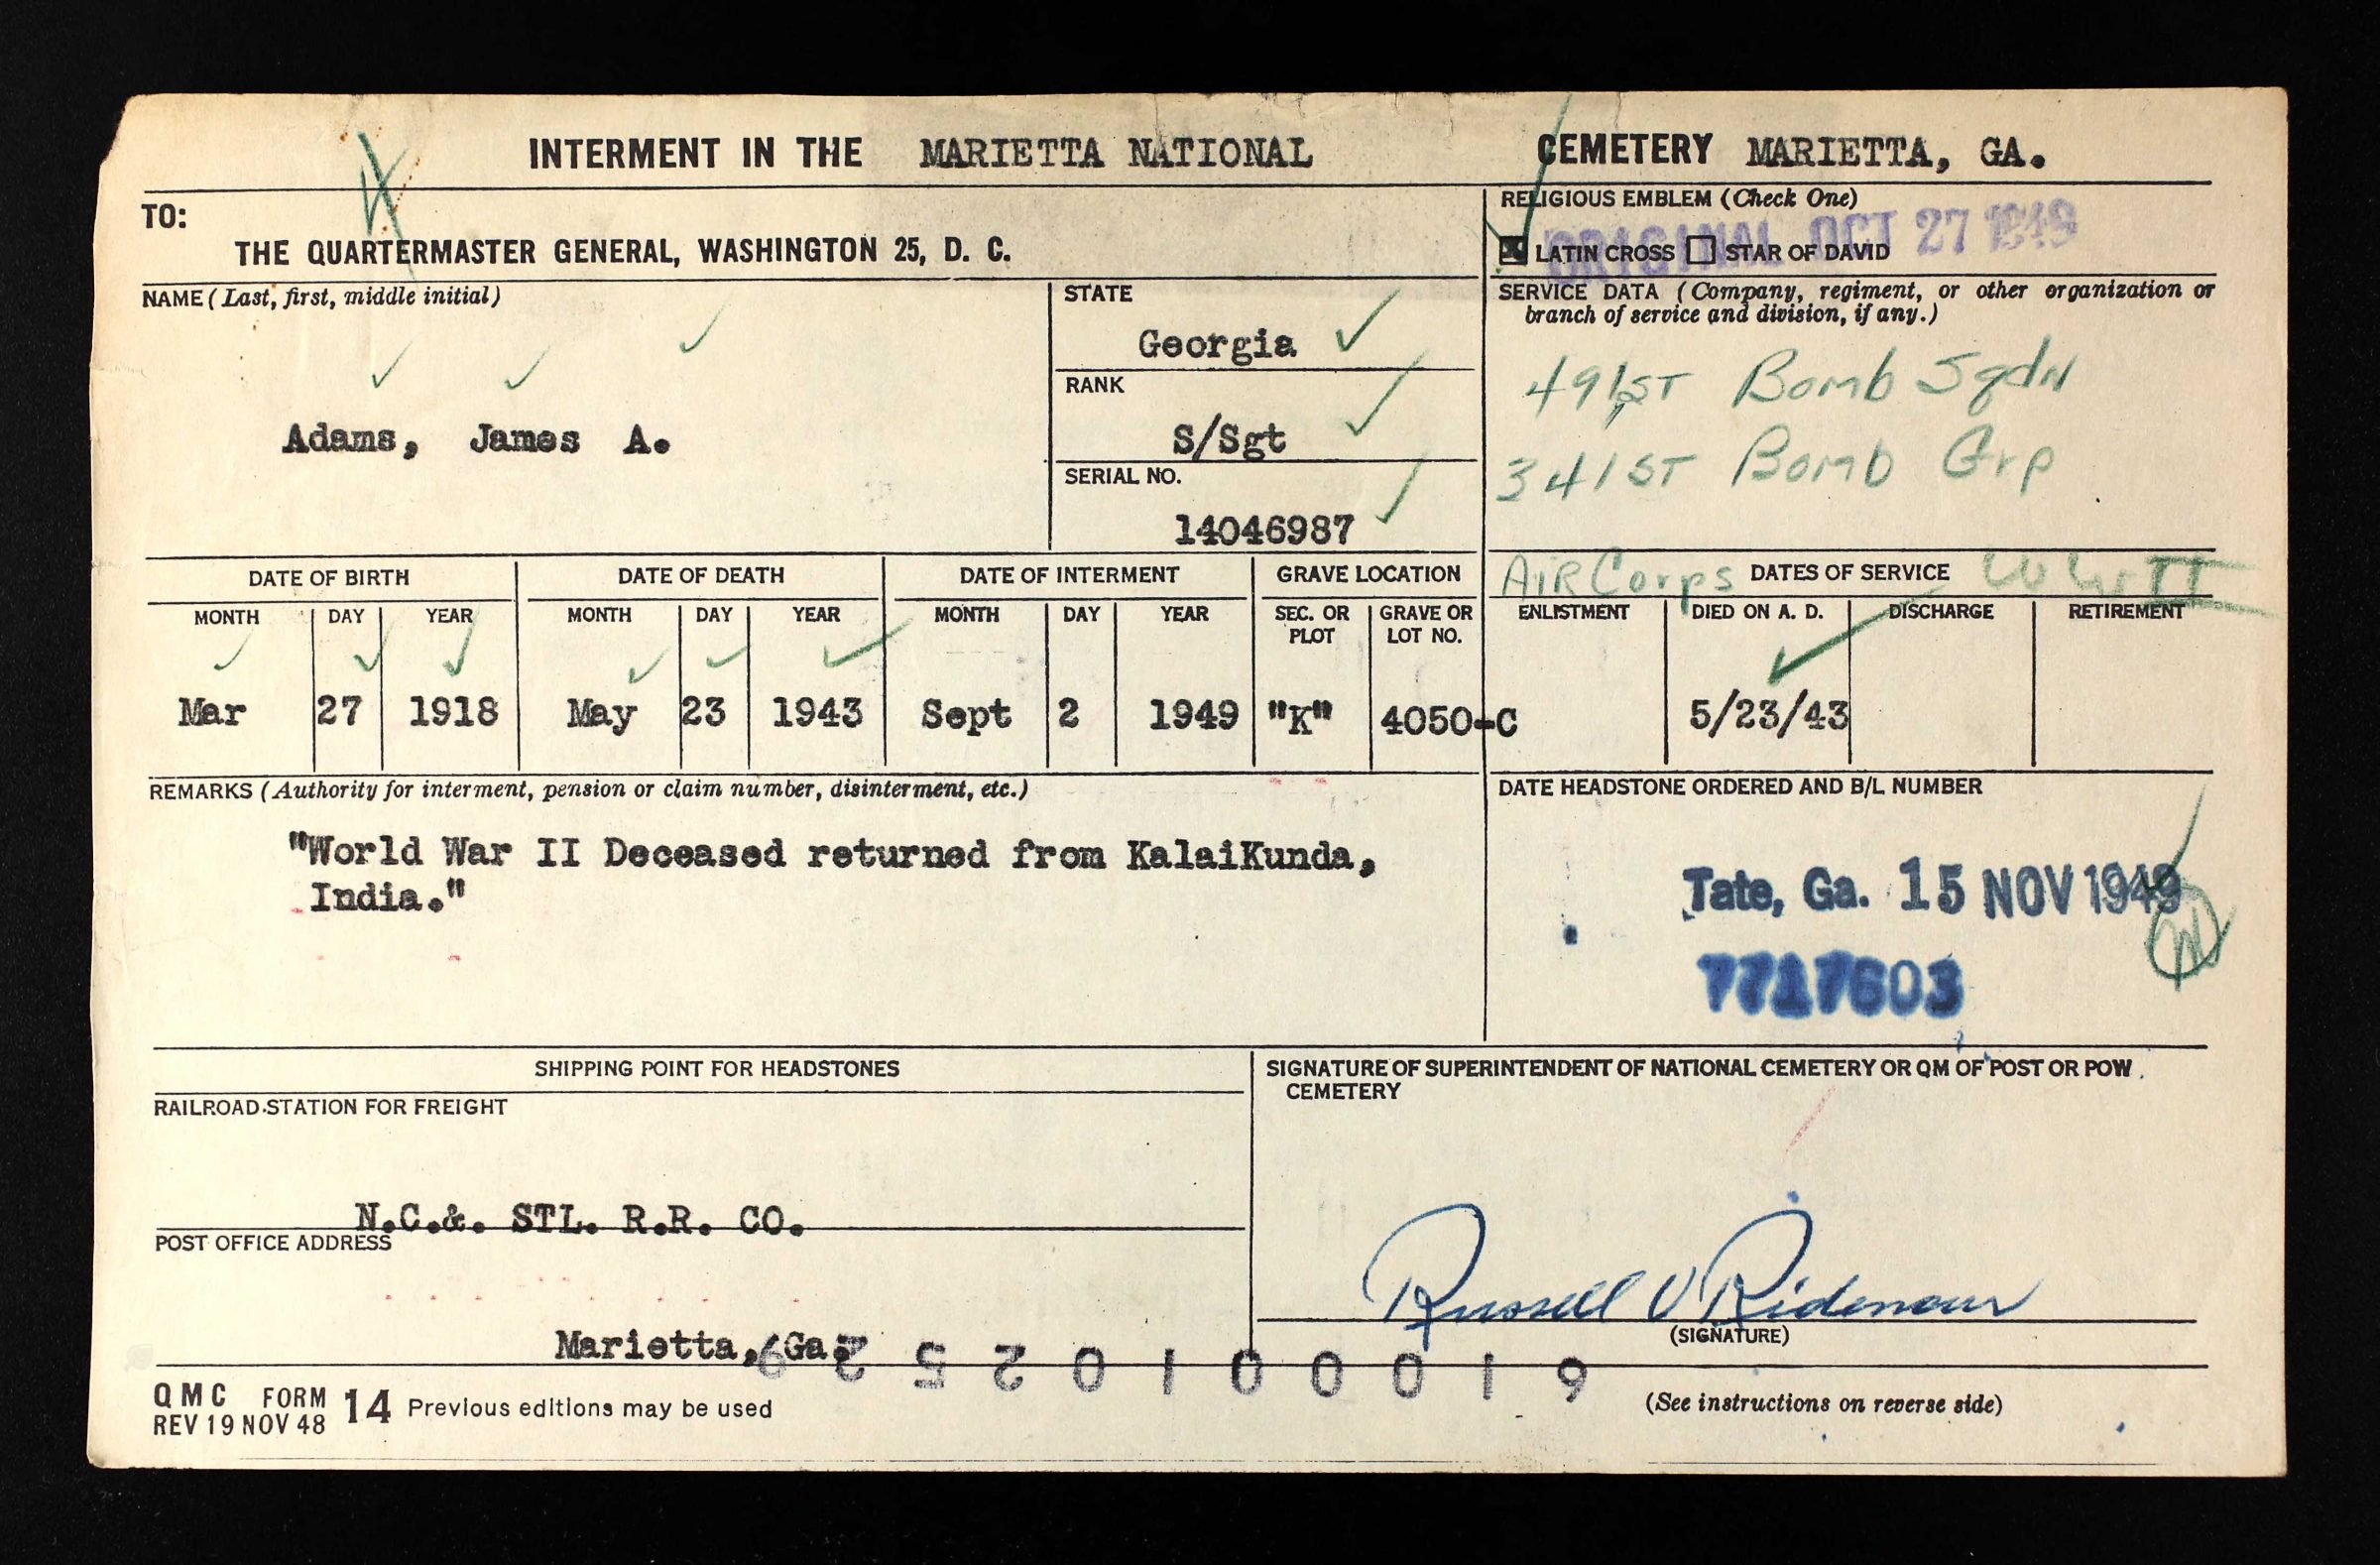 INTERMENT IN THE MARIETTA NATIONAL CEMETERY MARIETTA, GA.
TO:
THE QUARTERMASTER GENERAL, WASHINGTON 25, D. C.
RELIGIOUS EMBLEM (Check One)
ORIGINAL OCT 27 1949
LATIN CROSS STAR OF DAVID
NAME (Last, first, middle initial)
Adams, James A.
STATE
Georgia
RANK
S/Sgt
SERIAL NO.
14046987
SERVICE DATA (Company, regiment, or other organization or
branch of service and division, if any.)
491ST Bomb Sqdn
341ST Bomb Grp
AiR Corps DATES OF SERVICE WW II
DATE OF BIRTH DATE OF DEATH DATE OF INTERMENT GRAVE LOCATION
MONTH DAY YEAR MONTH DAY YEAR MONTH DAY YEAR SEC. OR PLOT GRAVE OR LOT NO. ENLISTMENT DIED ON A. D. DISCHARGE RETIREMENT
Mar 27 1918 May 23 1943 Sept 2 1949 "K" 4050-C 5/23/43
REMARKS (Authority for interment, pension or claim number, disinterment, etc.)
"World War II Deceased returned from KalaiKunda,
India."
DATE HEADSTONE ORDERED AND B/L NUMBER
Tate, Ga. 15 NOV 1949
7717603
SHIPPING POINT FOR HEADSTONES
RAILROAD STATION FOR FREIGHT
N.C.&. STL. R.R. CO.
POST OFFICE ADDRESS
Marietta, Ga.
SIGNATURE OF SUPERINTENDENT OF NATIONAL CEMETERY OR QM OF POST OR POW
CEMETERY
Russell V Ridenour
(SIGNATURE)
QMC FORM 14 Previous editions may be used
REV 19 NOV 48
(See instructions on reverse side)